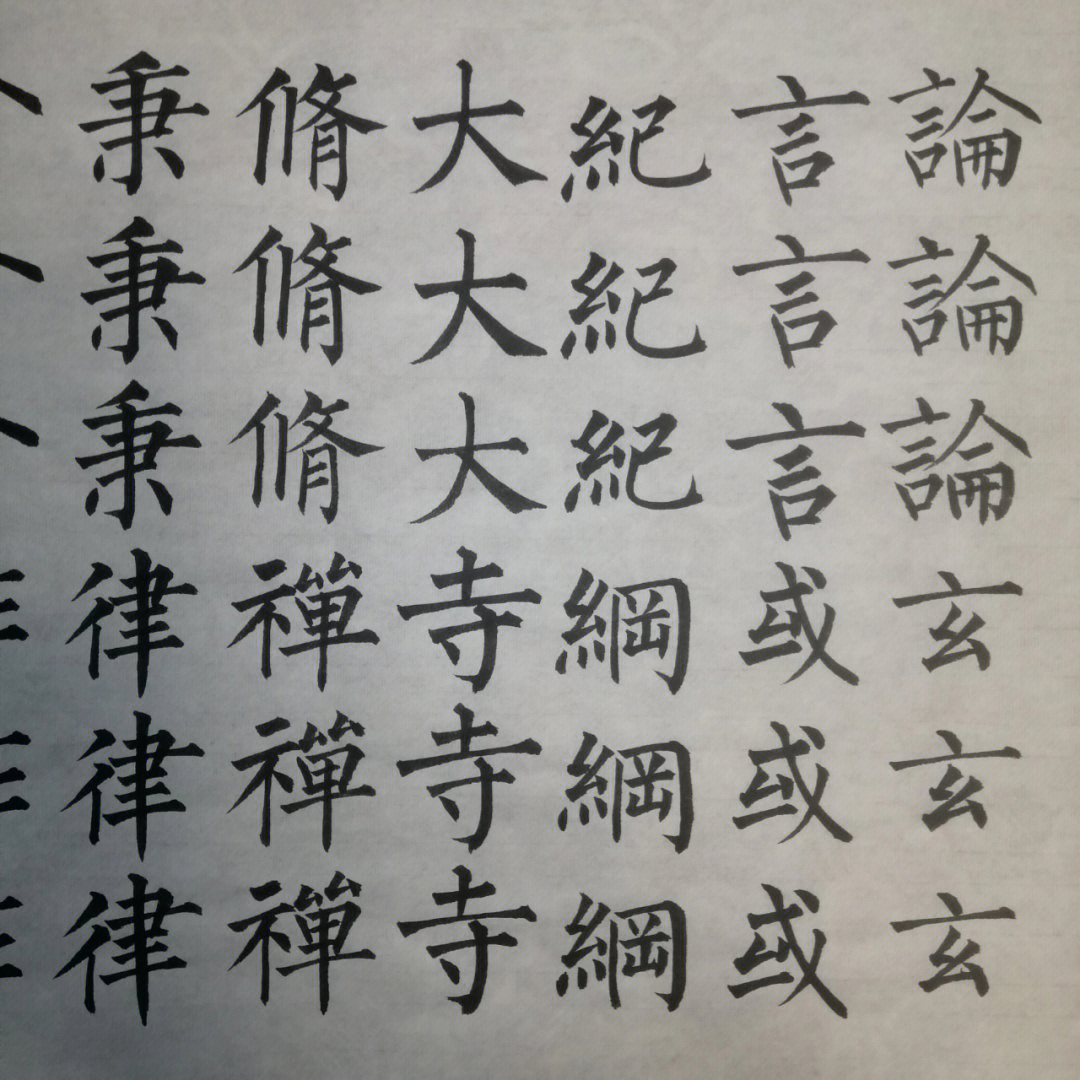 論論論玄玄玄
言言言或或或
紀紀紀綱綱綱
大大大寺寺寺
脩脩脩禪禪禪
秉秉秉律律律